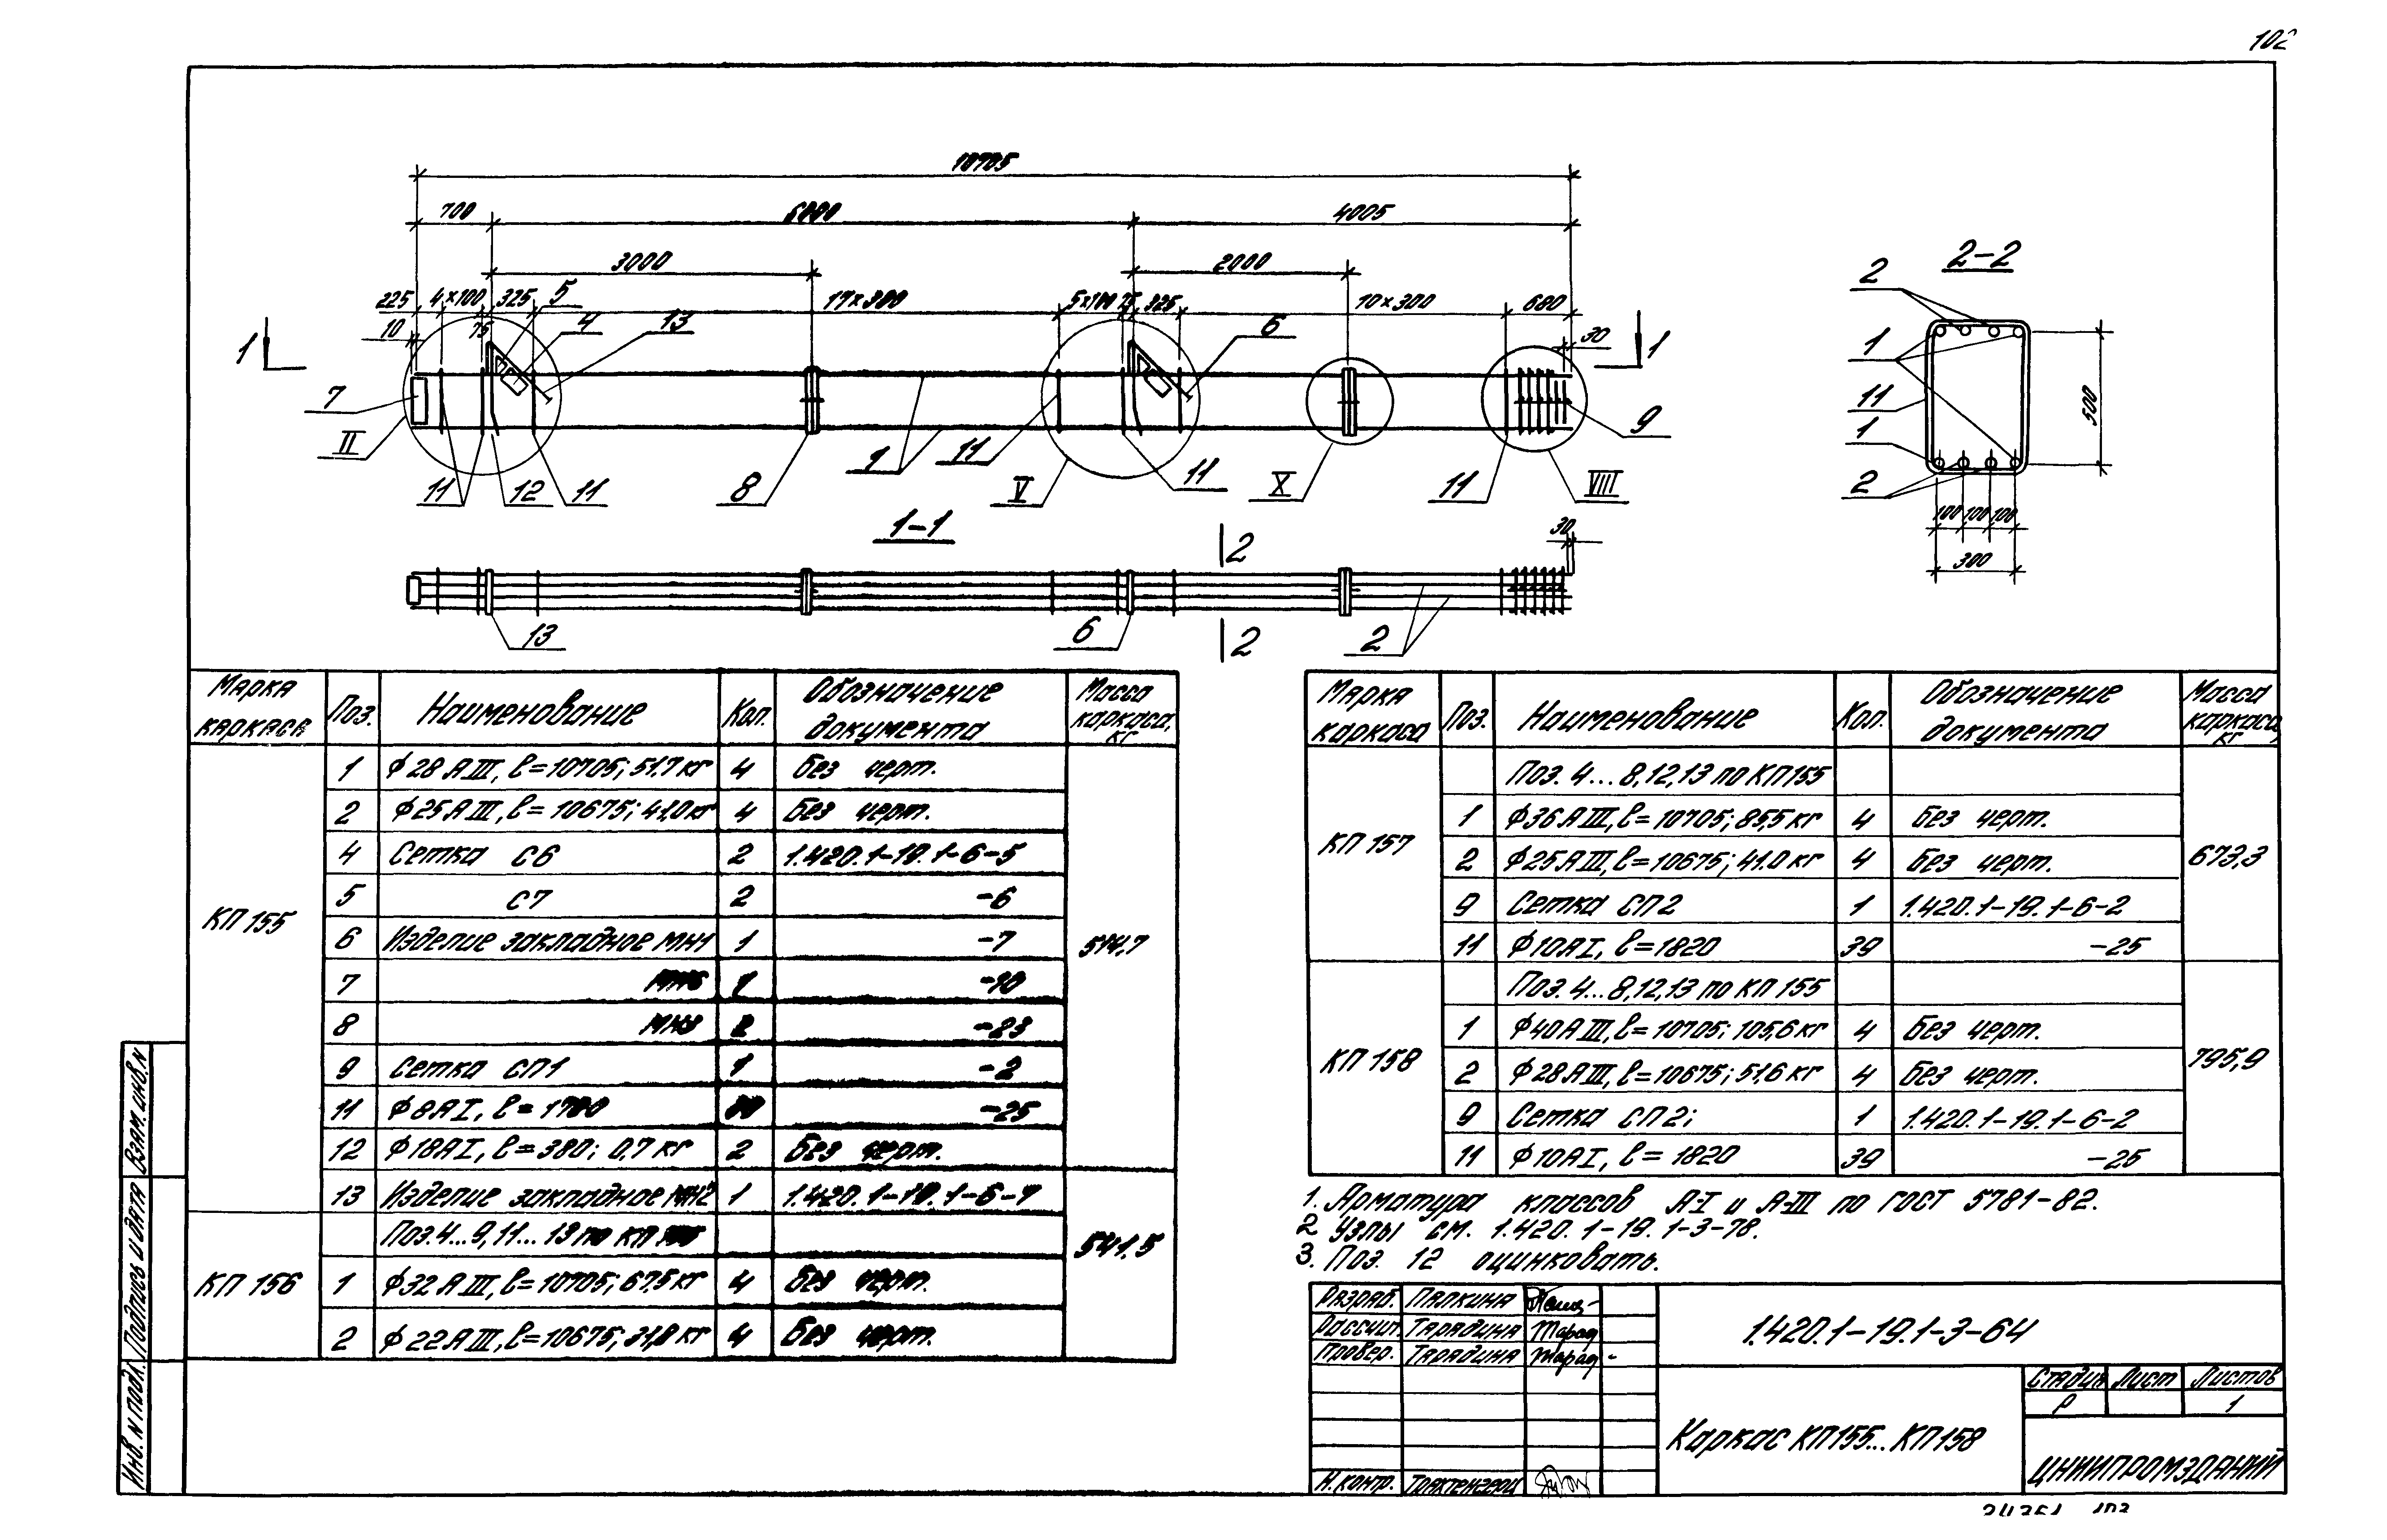 102
10705
700
6000
4005
3000
2000
225
4×100
325
5
17×300
5×100
25
325
10×300
680
10
75
4
13
6
30
1
1
7
II
9
11
12
11
8
1
11
V
11
X
11
VIII
1-1
2
30
13
6
2
2
2-2
2
1
11
1
2
500
100
100
100
300
Марка каркаса
Поз.
Наименование
Кол.
Обозначение документа
Масса каркаса, кг
КП 155
514,7
1 ϕ28 AIII, ℓ=10705; 51,7 кг 4 Без черт.
2 ϕ25 AIII, ℓ=10675; 41,0 кг 4 Без черт.
4 Сетка С6 2 1.420.1-19.1-6-5
5 С7 2 -6
6 Изделие закладное МН1 1 -7
7 1 -10
8 2 -23
9 Сетка СП1 1 -2
11 ϕ8AI, ℓ=1780 -25
12 ϕ18AI, ℓ=380; 0,7 кг 2 Без черт.
13 Изделие закладное МН2 1 1.420.1-19.1-6-7
КП 156
541,5
Поз. 4...9, 11...13 по КП 155
1 ϕ32 AIII, ℓ=10705; 67,5 кг 4 Без черт.
2 ϕ22 AIII, ℓ=10675; 31,8 кг 4 Без черт.
Марка каркаса
Поз.
Наименование
Кол.
Обозначение документа
Масса каркаса, кг
КП 157
673,3
Поз. 4...8, 12, 13 по КП155
1 ϕ36 AIII, ℓ=10705; 85,5 кг 4 Без черт.
2 ϕ25 AIII, ℓ=10675; 41.0 кг 4 Без черт.
9 Сетка СП2 1 1.420.1-19.1-6-2
11 ϕ10AI, ℓ=1820 39 -25
КП 158
795,9
Поз. 4...8, 12, 13 по КП 155
1 ϕ40 AIII, ℓ=10705; 105,6 кг 4 Без черт.
2 ϕ28 AIII, ℓ=10675; 51,6 кг 4 Без черт.
9 Сетка СП2; 1 1.420.1-19.1-6-2
11 ϕ10AI, ℓ=1820 39 -25
1. Арматура классов А-I и А-III по ГОСТ 5781-82.
2 Узлы см. 1.420.1-19.1-3-78.
3. Поз. 12 оцинковать.
Разраб. Палкина
Рассчит. Тарадина
Провер. Тарадина
Н. контр.
1.420.1-19.1-3-64
Каркас КП155...КП158
Стадия Лист Листов
Р 1
ЦНИИПРОМЗДАНИЙ
Взам. инв. N
Подпись и дата
Инв. N подл.